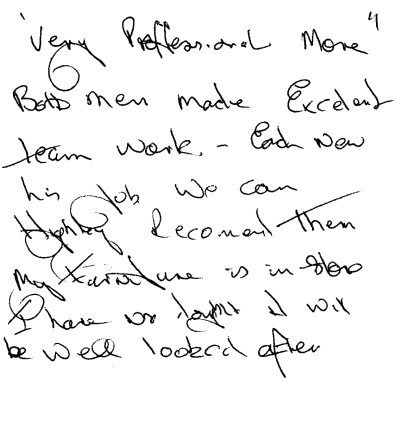 "Very Proffessional Move"
Both men made Excelent
team work. - Each new
his job we can
Highley Recomend them
my furnature is in store
I have no doubt it will
be well looked after